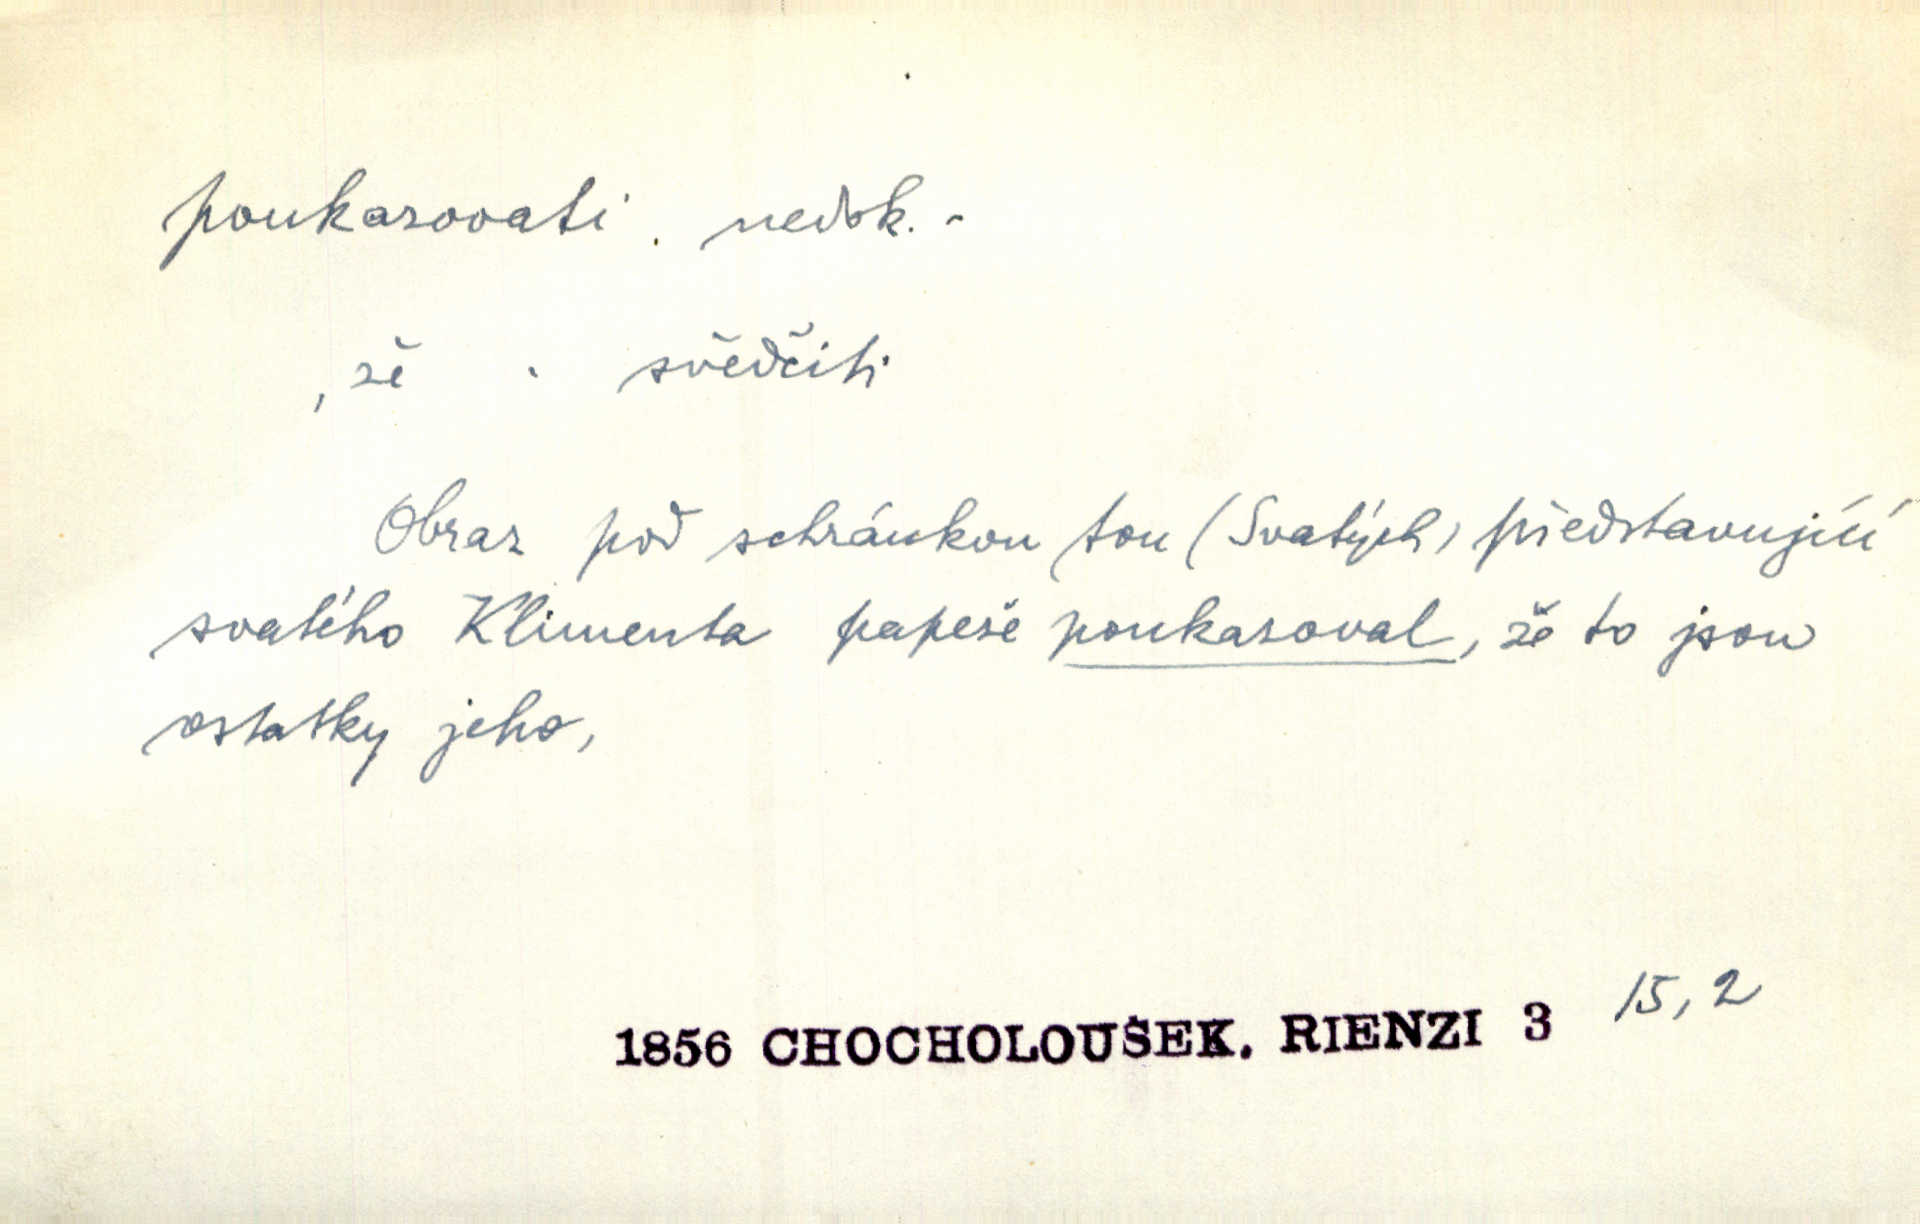 poukazovati . nedok. -
, že . svědčiti
Obraz pod schránkou tou (Svatých) představující
svatého Klimenta papeže poukazoval, že to jsou
ostatky jeho,
15,2
1856 CHOCHOLOUŠEK. RIENZI 3